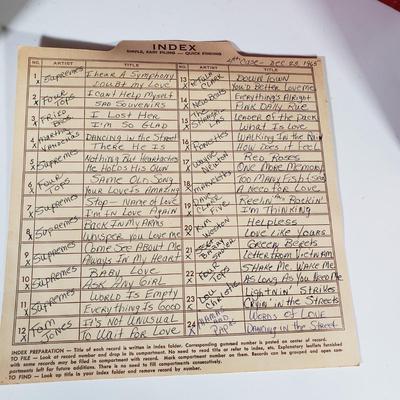 INDEX
SIMPLE, EASY FILING — QUICK FINDING
Case - DEC 23, 1965
NO. ARTIST TITLE
1 SUPREMES I hear A Symphony
Who Could Doubt My Love
2 FOUR TOPS I Can't Help Myself
SAD SOUVENIRS
3 BROS. I Lost Her
I'm So Glad
4 MARTHA VANDELLAS DANCING in the Street
There He Is
5 SUPREMES Nothing But Heartaches
He Holds His Own
6 FOUR TOPS SAME Old Song
Your Love Is Amazing
7 SUPREMES Stop - Name of Love
I'm In Love Again
8 SUPREMES BACK In My Arms
Whisper You Love Me
9 SUPREMES Come See About Me
Always In My Heart
10 SUPREMES BABY Love
Ask Any Girl
11 SUPREMES World Is Empty
Everything Is Good
12 TOM JONES It's Not Unusual
To Wait For Love
NO. ARTIST TITLE
13 PETULA CLARK DOWNTOWN
You'd Better Love Me
14 The Newbeats Everything's Alright
Pink Dally Rue
15 The SHANGRI LAS Leader of the Pack
What Is Love
16 RONETTES Walking In The Rain
How Does it Feel
17 WAYNE NEWTON RED Roses
One More Memory
18 MARVELETTES Too Many Fish/Sea
A Need For Love
19 DAVE CLARK FIVE Reelin' Rockin'
I'm Thinking
20 KIM WESTON Helpless
Love Like Yours
21 SGT BARRY SADLER GREEN Berets
Letter From Vietnam
22 FOUR TOPS SHAKE Me, WAKE Me
As Long As You Need Me
23 LOU CHRISTIE Lightnin' Strikes
Cryin' in the Streets
24 MAMAS AND PAPAS Words of Love
DANCING in the Street
INDEX PREPARATION — Title of each record is written in index folder. Corresponding gummed number is posted on center of record.
TO FILE — Look at record number and drop in its compartment. No need to read title or refer to index, etc. Explanatory leaflets furnished
with some records may be filed in compartment with record. Mark compartment number on them. Records can be grouped and open com-
partments left for future additions. There is no need to file consecutively.
TO FIND — Look up title in your index folder and remove record by number.